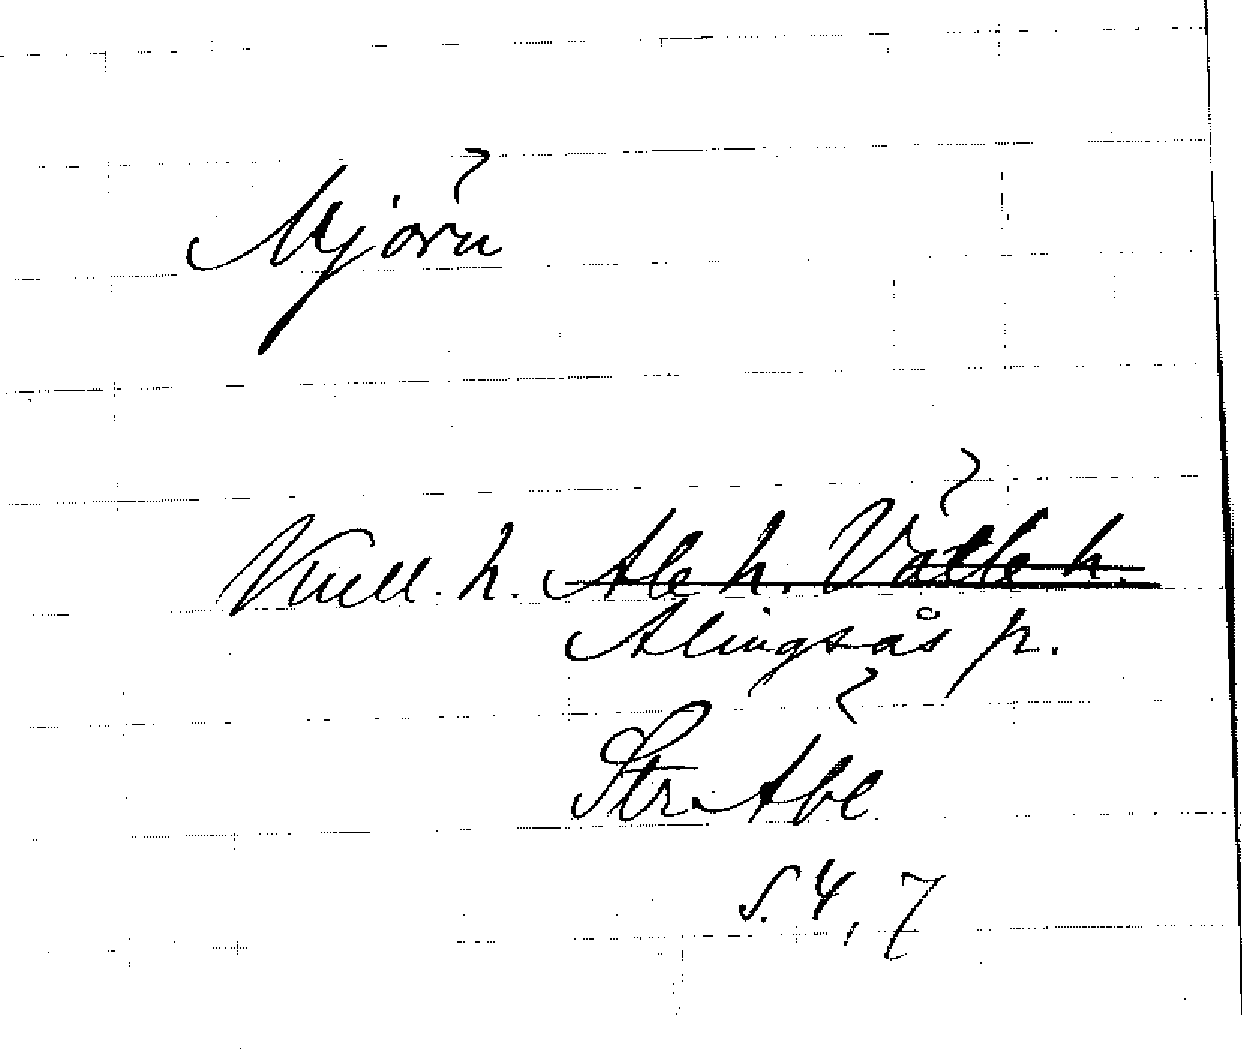 Mjörn
Kull. h. Ale h. Vätle h.
Alingsås p.
Str Abl
s. 4, 7